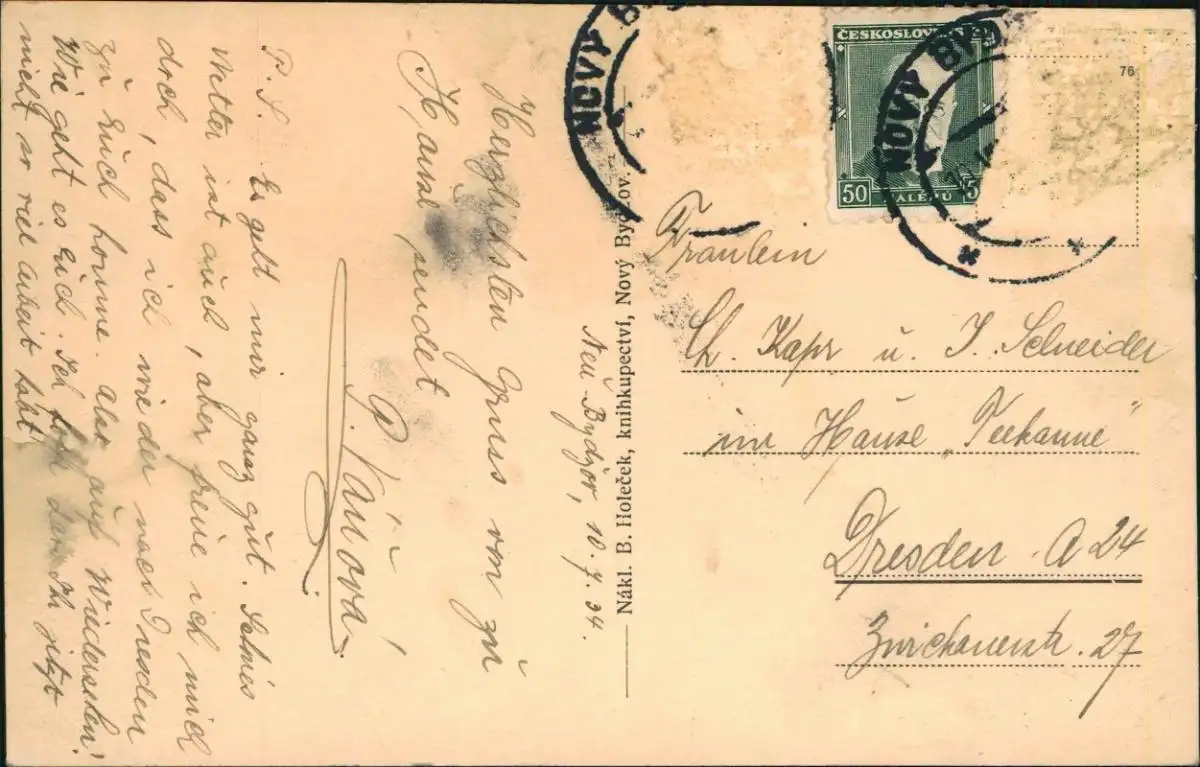 Neu Bydžov, 10.7.34.
Herzlichsten Gruss von zu
Hause sendet
Váňová.
P. S. Es geht mir ganz gut.
Wetter ist auch, aber freue ich mich
doch, dass ich wieder nach Dresden
zu Euch komme. aber auf Wiedersehen!
Wie geht es Euch. Ich hoffe dass Ihr jetzt
nicht so viel Arbeit habt!
Nákl. B. Holeček, knihkupectví, Nový Bydžov.
NOVÝ
NOVÝ
ČESKOSLOVENSKO
50 HALÉŘŮ 5
76
Fräulein
Ch. Kapr u. I. Schneider
im Hause „Teekanne"
Dresden A 24
Zwickauerstr. 27